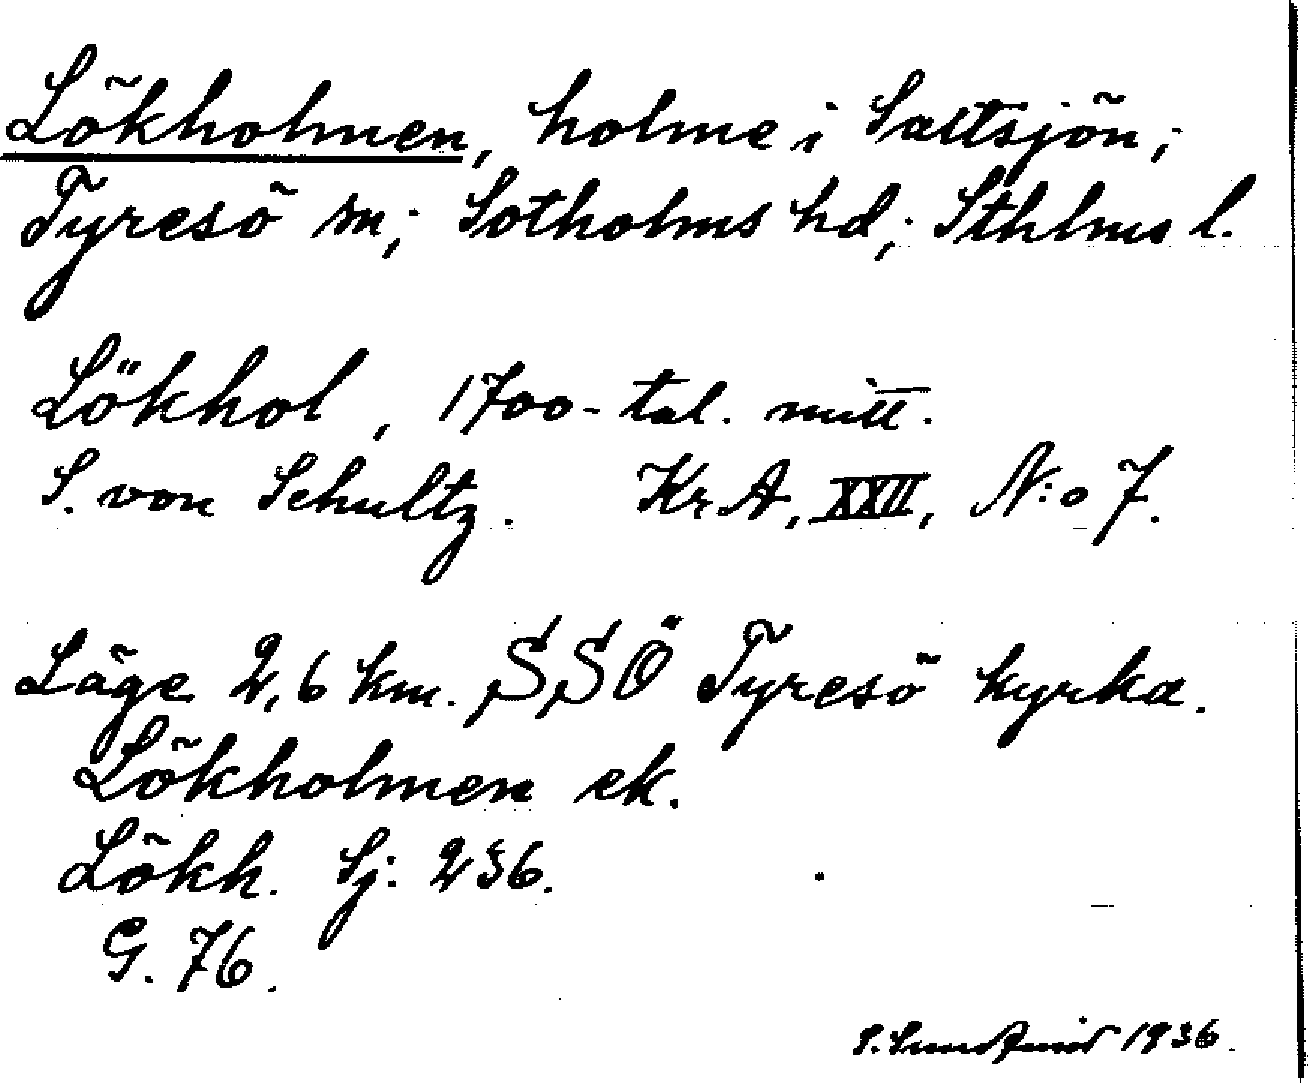 Lökholmen, holme i Saltsjön;
Tyresö sn; Sotholms hd; Sthlms l.
Lökhol, 1700-tal. mitt.
S. von Schultz. KrA, XXII, N:o 7.
Läge 2,6 km. SSÖ Tyresö kyrka.
Lökholmen ek.
Lökh. Sj. 236.
G. 76.
1936.